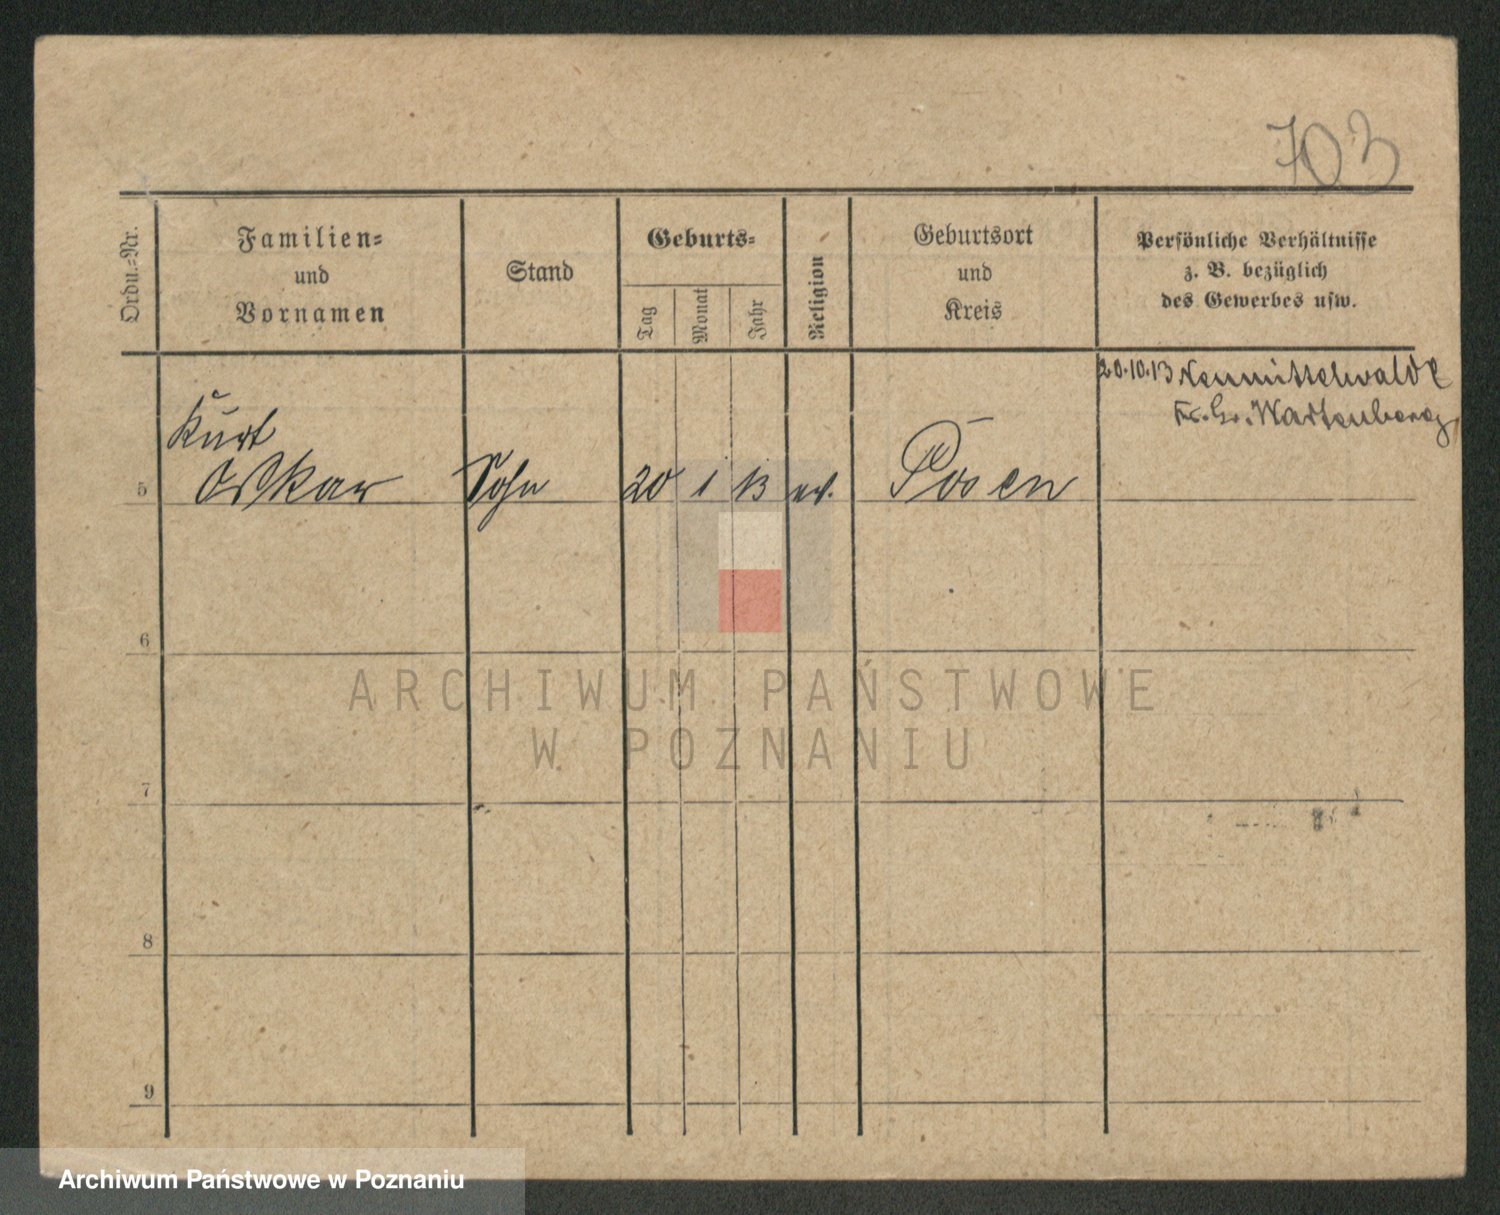 703
Ordn.-Nr.
Familien-
und
Vornamen
Stand
Geburts-
Tag
Monat
Jahr
Religion
Geburtsort
und
Kreis
Persönliche Verhältnisse
z. B. bezüglich
des Gewerbes usw.
20.10.13 Neumittelwalde
Kr. Gr. Wartenberg
Kurt
5 Oskar Sohn 20 1 13 ev. Posen
6
7
8
9
ARCHIWUM PAŃSTWOWE
W POZNANIU
Archiwum Państwowe w Poznaniu